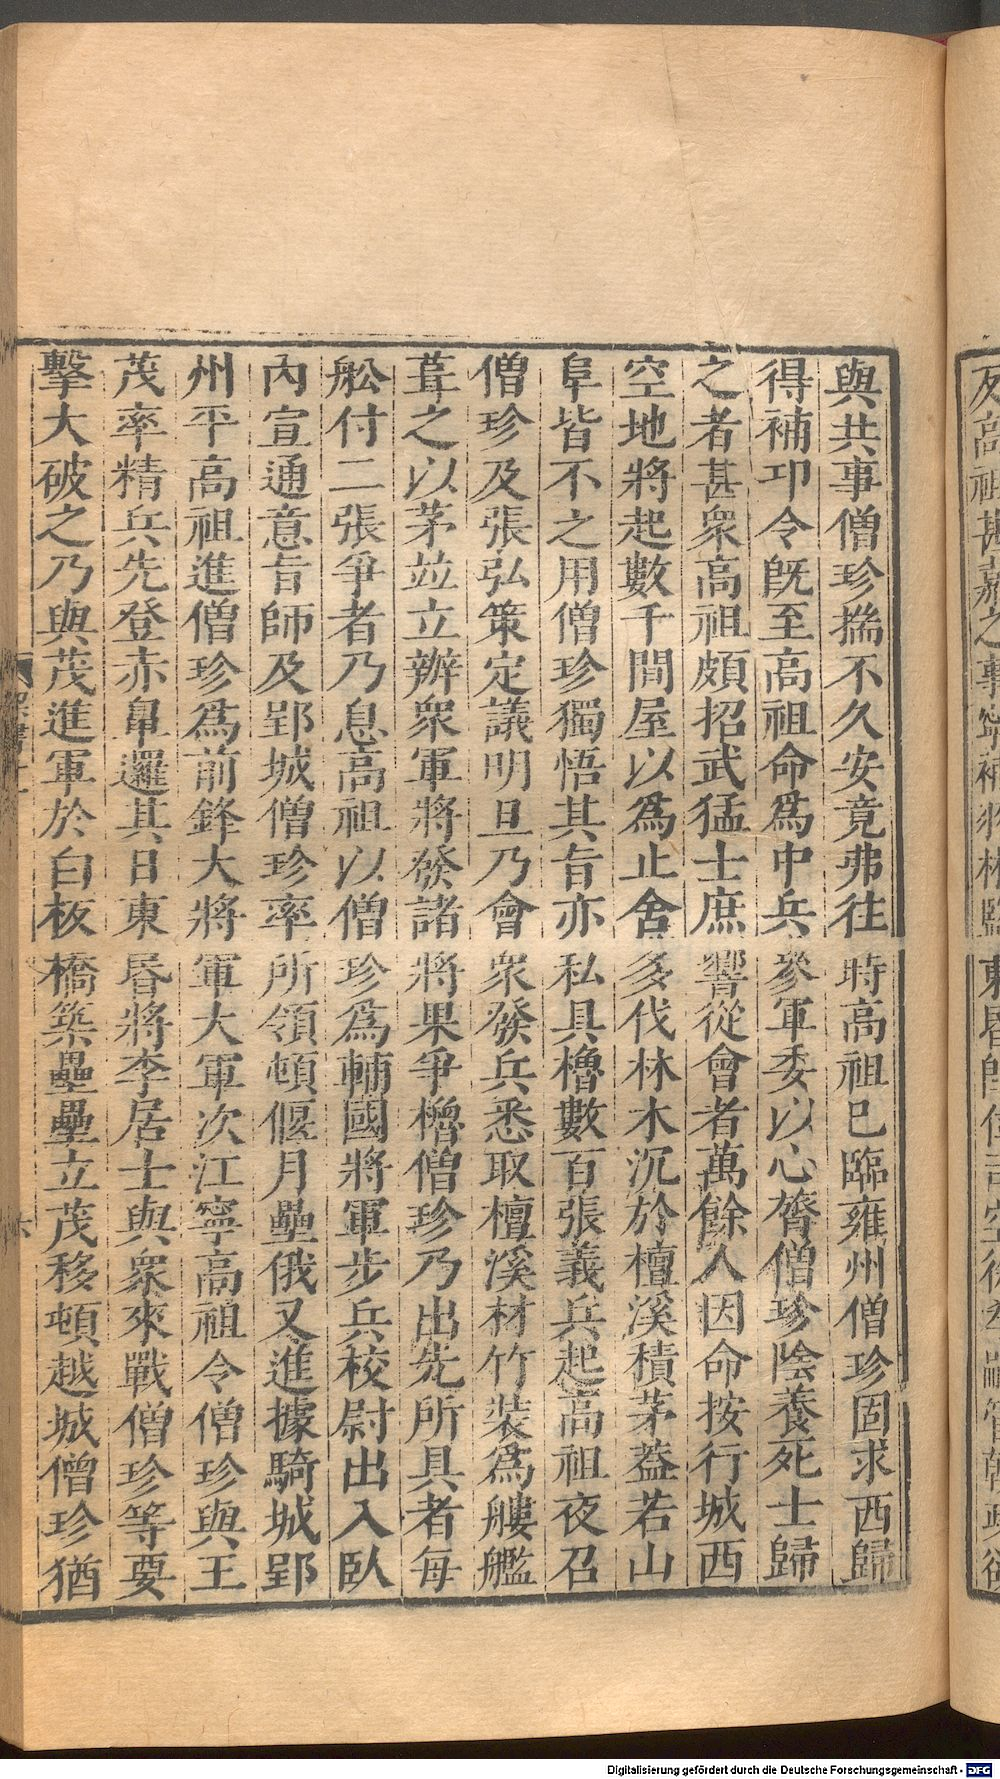 與共事僧珍揣不久安竟弗往時高祖巳臨雍州僧珍固求西歸
得補邔令旣至高祖命爲中兵參軍委以心膂僧珍陰養死士歸
之者甚衆高祖頗招武猛士庶響從會者萬餘人因命按行城西
空地將起數千間屋以爲止舍多伐林木沉於檀溪積茅葢若山
阜皆不之用僧珍獨悟其旨亦私具櫓數百張義兵起高祖夜召
僧珍及張弘策定議明旦乃會衆發兵悉取檀溪材竹裝爲艛艦
葺之以茅並立辦衆軍將發諸將果爭櫓僧珍乃出先所具者每
舩付二張爭者乃息高祖以僧珍爲輔國將軍步兵校尉出入臥
內宣通意旨師及郢城僧珍率所領頓偃月壘俄又進據騎城郢
州平高祖進僧珍爲前鋒大將軍大軍次江寧高祖令僧珍與王
茂率精兵先登赤鼻邏其日東昬將李居士與衆來戰僧珍等要
擊大破之乃與茂進軍於白板橋築壘壘立茂移頓越城僧珍猶
Digitalisierung gefördert durch die Deutsche Forschungsgemeinschaft - DFG